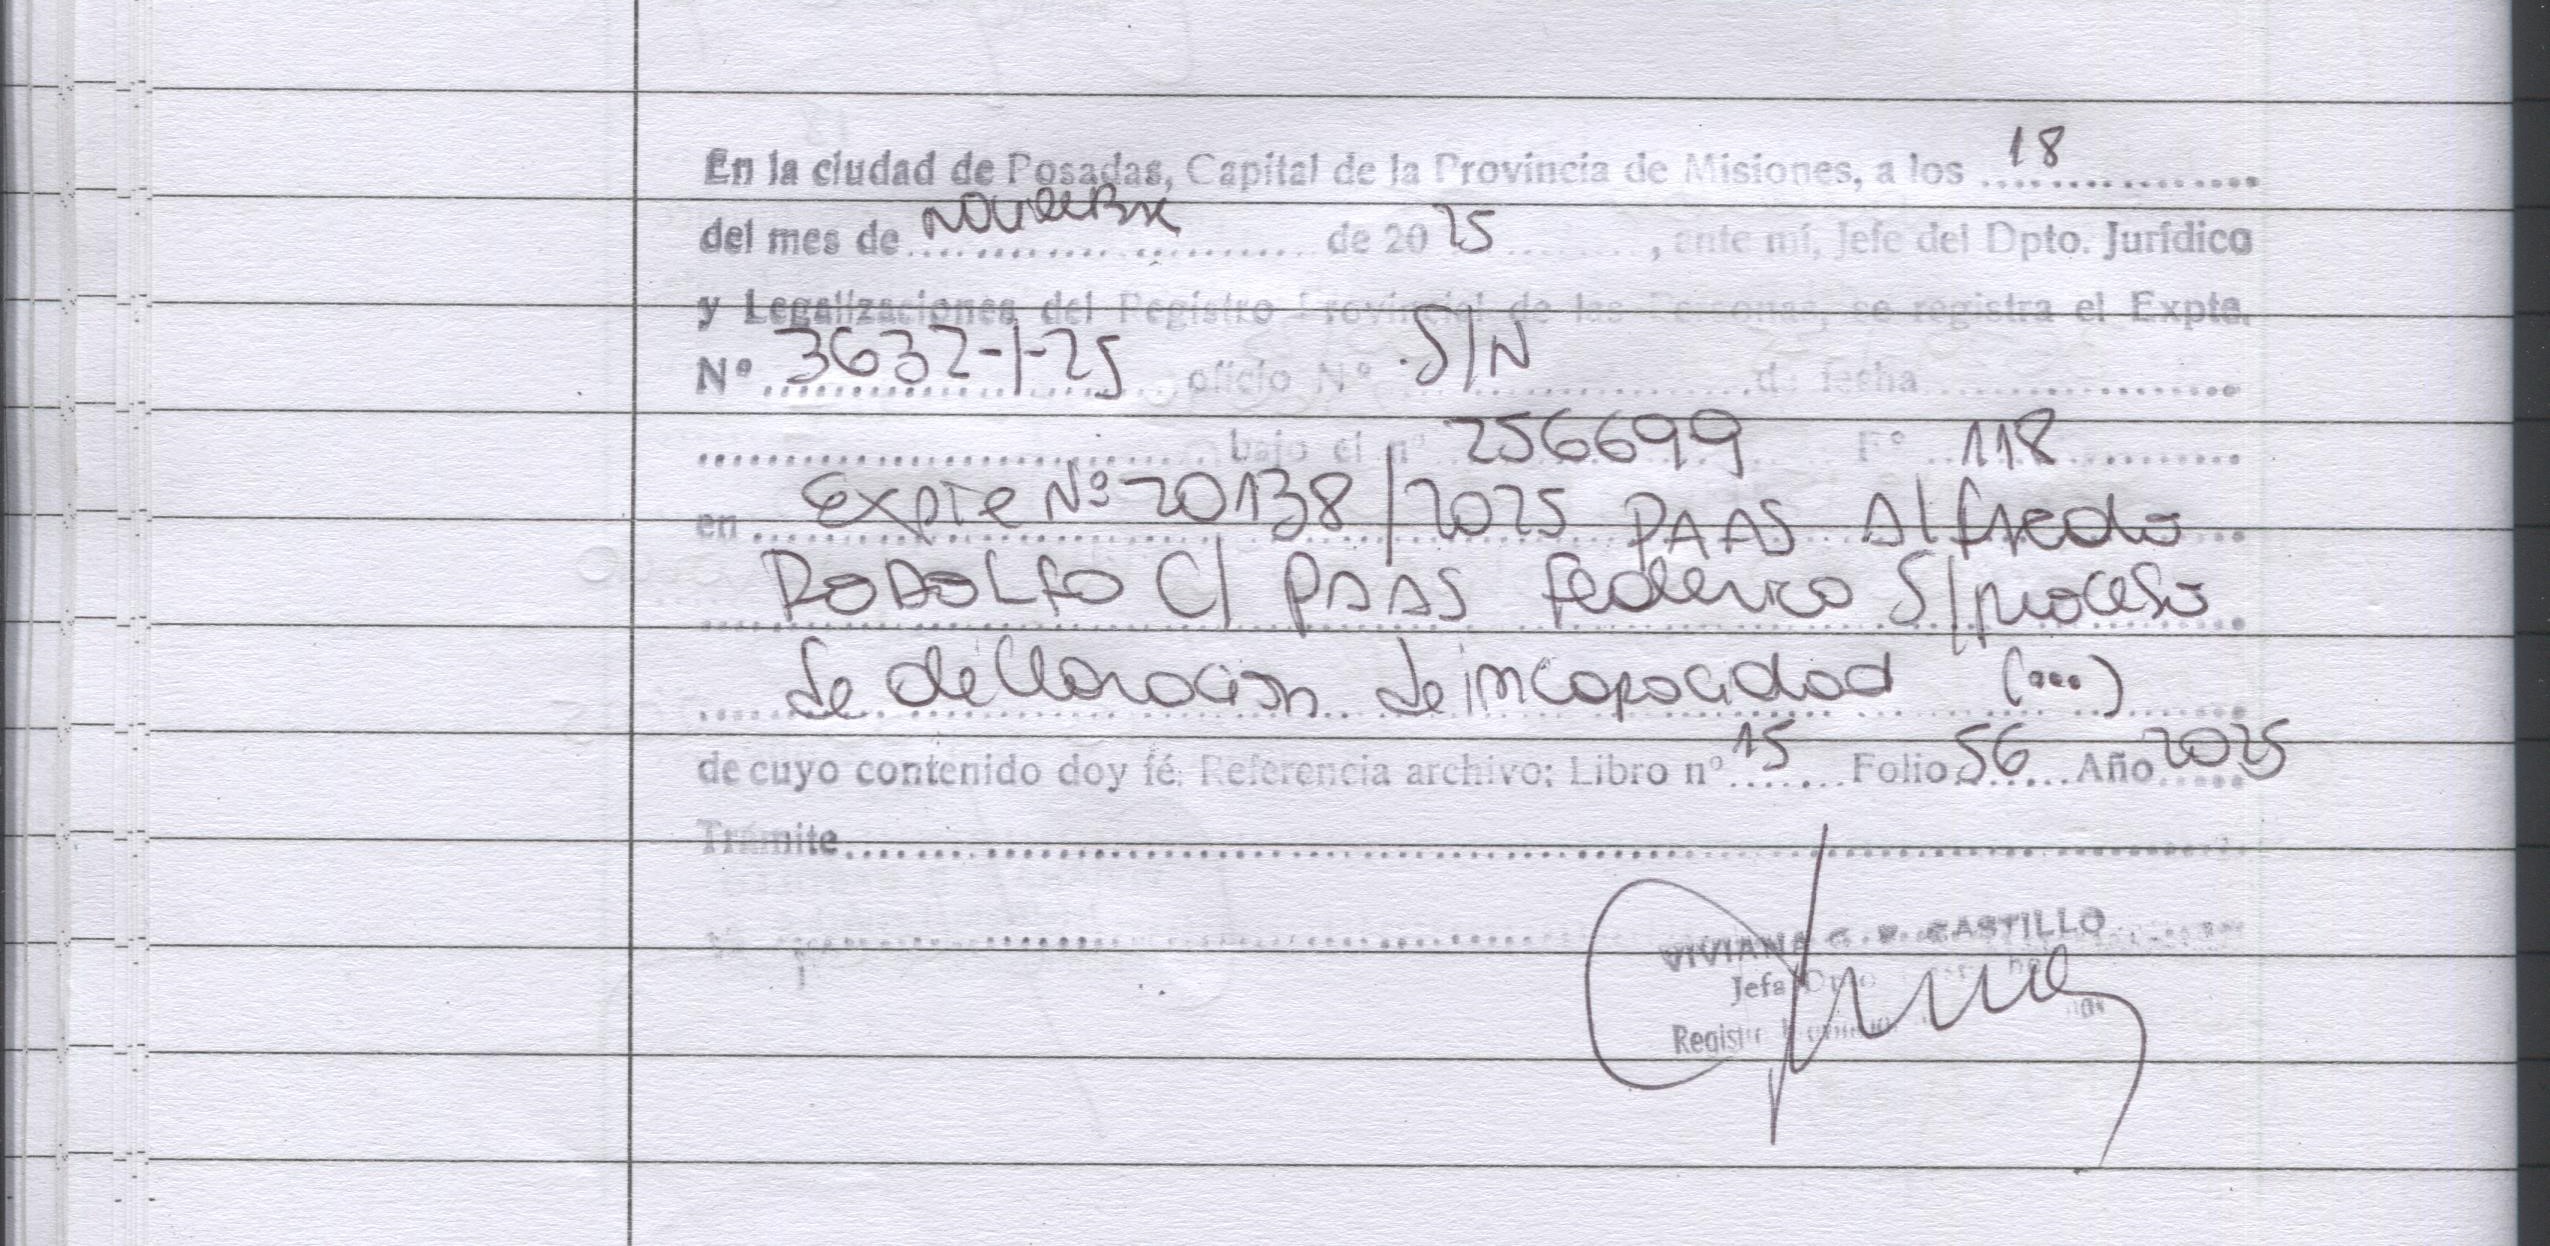 En la ciudad de Posadas, Capital de la Provincia de Misiones, a los 18
del mes de Noviembre de 2025, ante mí, Jefe del Dpto. Jurídico
y Legalizaciones del Registro Provincial de las Personas, se registra el Expte.
Nº 3632-1-25 oficio Nº S/N de fecha
bajo el nº 256699 Fº 118
en Expte Nº 20138/2025 PAAS Alfredo
RODOLFO C/ PAAS Federico S/ proceso
de declaracion de incapacidad (...)
de cuyo contenido doy fé. Referencia archivo: Libro nº 15 Folio 56 Año 2025
Trámite
VIVIANA CASTILLO
Jefa Dpto